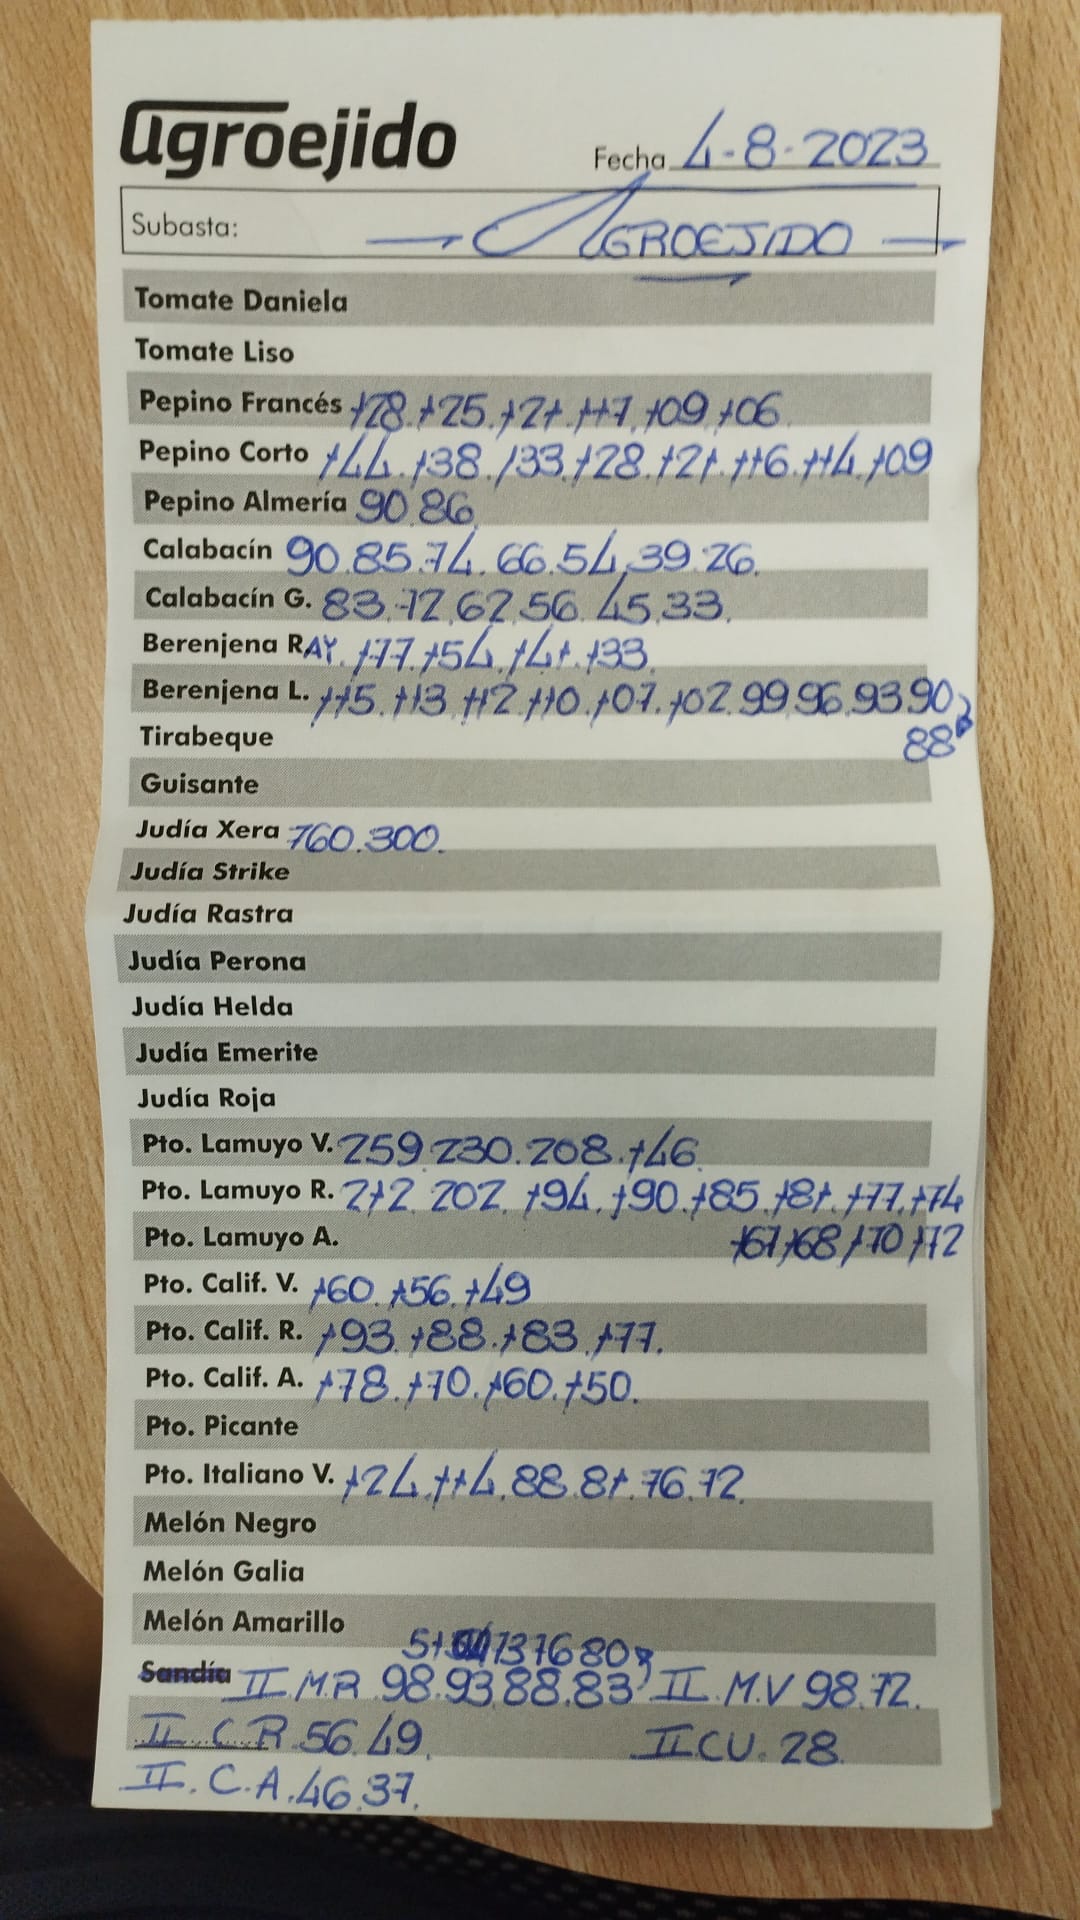 agroejido Fecha 4-8-2023
Subasta: AGROEJIDO
Tomate Daniela
Tomate Liso
Pepino Francés 128.125.121.117.109.106.
Pepino Corto 144.138.133.128.121.116.114.109
Pepino Almería 90.86.
Calabacín 90.85.74.66.54.39.26.
Calabacín G. 83.72.62.56.45.33.
Berenjena RAY. 177.154.141.133.
Berenjena L. 115.113.112.110.107.102.99.96.93.90
Tirabeque 88
Guisante
Judía Xera 760.300.
Judía Strike
Judía Rastra
Judía Perona
Judía Helda
Judía Emerite
Judía Roja
Pto. Lamuyo V. 259.230.208.146.
Pto. Lamuyo R. 212.202.194.190.185.181.177.174
Pto. Lamuyo A. 167.168.170.172
Pto. Calif. V. 160.156.149
Pto. Calif. R. 193.188.183.177.
Pto. Calif. A. 178.170.160.150.
Pto. Picante
Pto. Italiano V. 124.114.88.81.76.72.
Melón Negro
Melón Galia
Melón Amarillo
51 73 76 80
Sandía II.M.R 98.93.88.83 II.M.V 98.72.
II.C.R.56.49. II CU.28.
II.C.A.46.37.